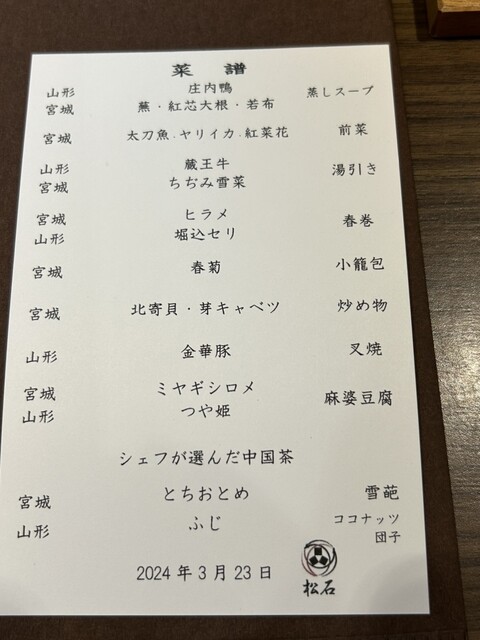 菜譜
山形 庄内鴨 蒸しスープ
宮城 蕪・紅芯大根・若布
宮城 太刀魚.ヤリイカ.紅菜花 前菜
山形 蔵王牛 湯引き
宮城 ちぢみ雪菜
宮城 ヒラメ 春巻
山形 堀込セリ
宮城 春菊 小籠包
宮城 北寄貝・芽キャベツ 炒め物
山形 金華豚 叉焼
宮城 ミヤギシロメ 麻婆豆腐
山形 つや姫
シェフが選んだ中国茶
宮城 とちおとめ 雪葩
山形 ふじ ココナッツ
団子
2024年3月23日
松石